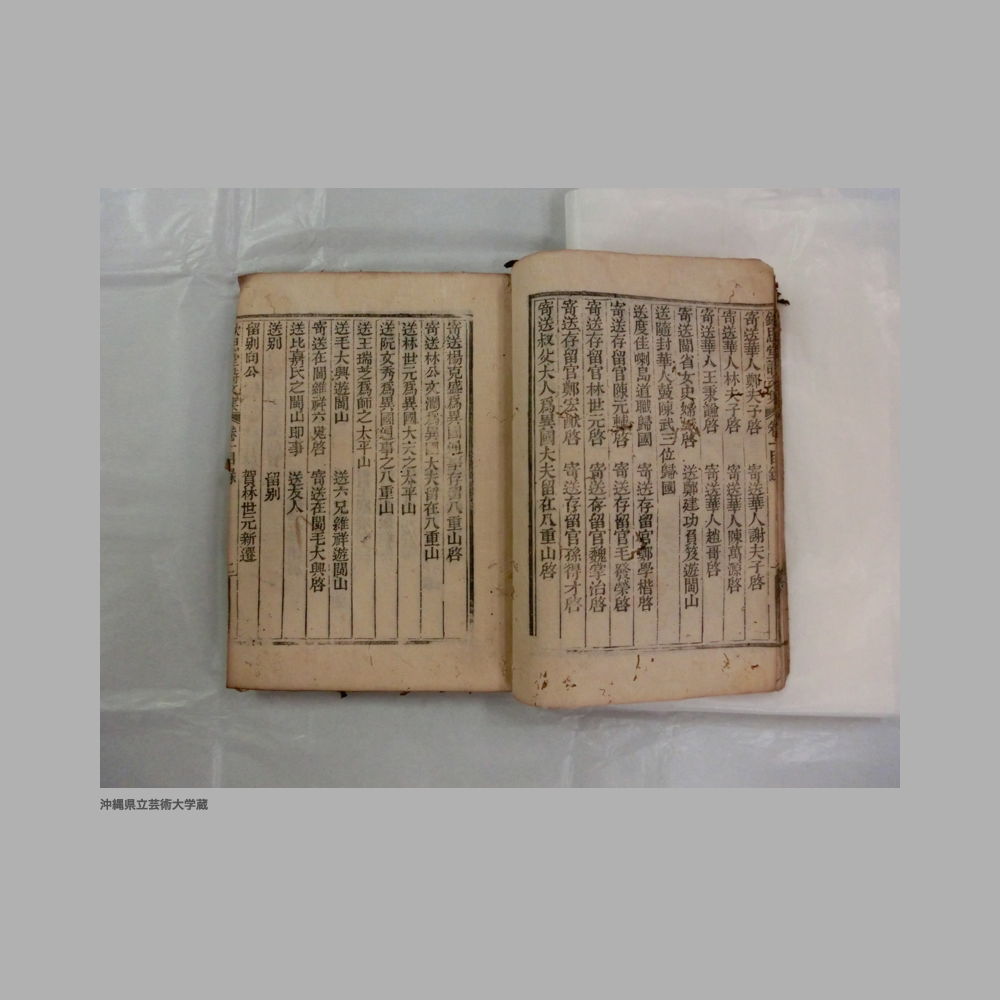 寄送華人鄭夫子啓 寄送華人謝夫子啓
寄送華人林夫子啓 寄送華人陳萬源啓
寄送華人王秉論啓 寄送華人趙哥啓
寄送閩省女史婦 啓 送鄭建功負笈遊閩山
送隨封華人鼓陳武三位歸國
送度佳喇島道職歸國 寄送存留官鄭學楷啓
寄送存留官陳元輔啓 寄送存留官毛發榮啓
寄送存留官林世元啓 寄送存留官魏掌治啓
寄送存留官鄭宏猷啓 寄送存留官孫得才啓
寄送叔父大人為異國大夫留在八重山啓
寄送楊克盛為異國通事存留八重山啓
寄送林公文瀾為異國大夫留在八重山
送林世元為異國大夫之太平山
送阮文秀為異國通事之八重山
送王瑞芝為師之太平山
送毛大興遊閩山 送六兄維祥遊閩山
寄送在閩維祥六兄啓 寄送在閩毛大興啓
送比嘉氏之閩山即事 送友人
送別 留別
留別向公 賀林世元新遷
卷一目錄 二
沖縄県立芸術大学蔵